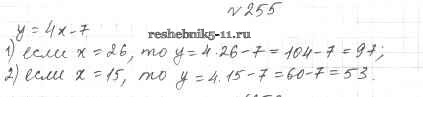 №255
y = 4x - 7
reshebnik5-11.ru
1) если x = 26, то y = 4 · 26 - 7 = 104 - 7 = 97;
2) если x = 15, то y = 4 · 15 - 7 = 60 - 7 = 53.